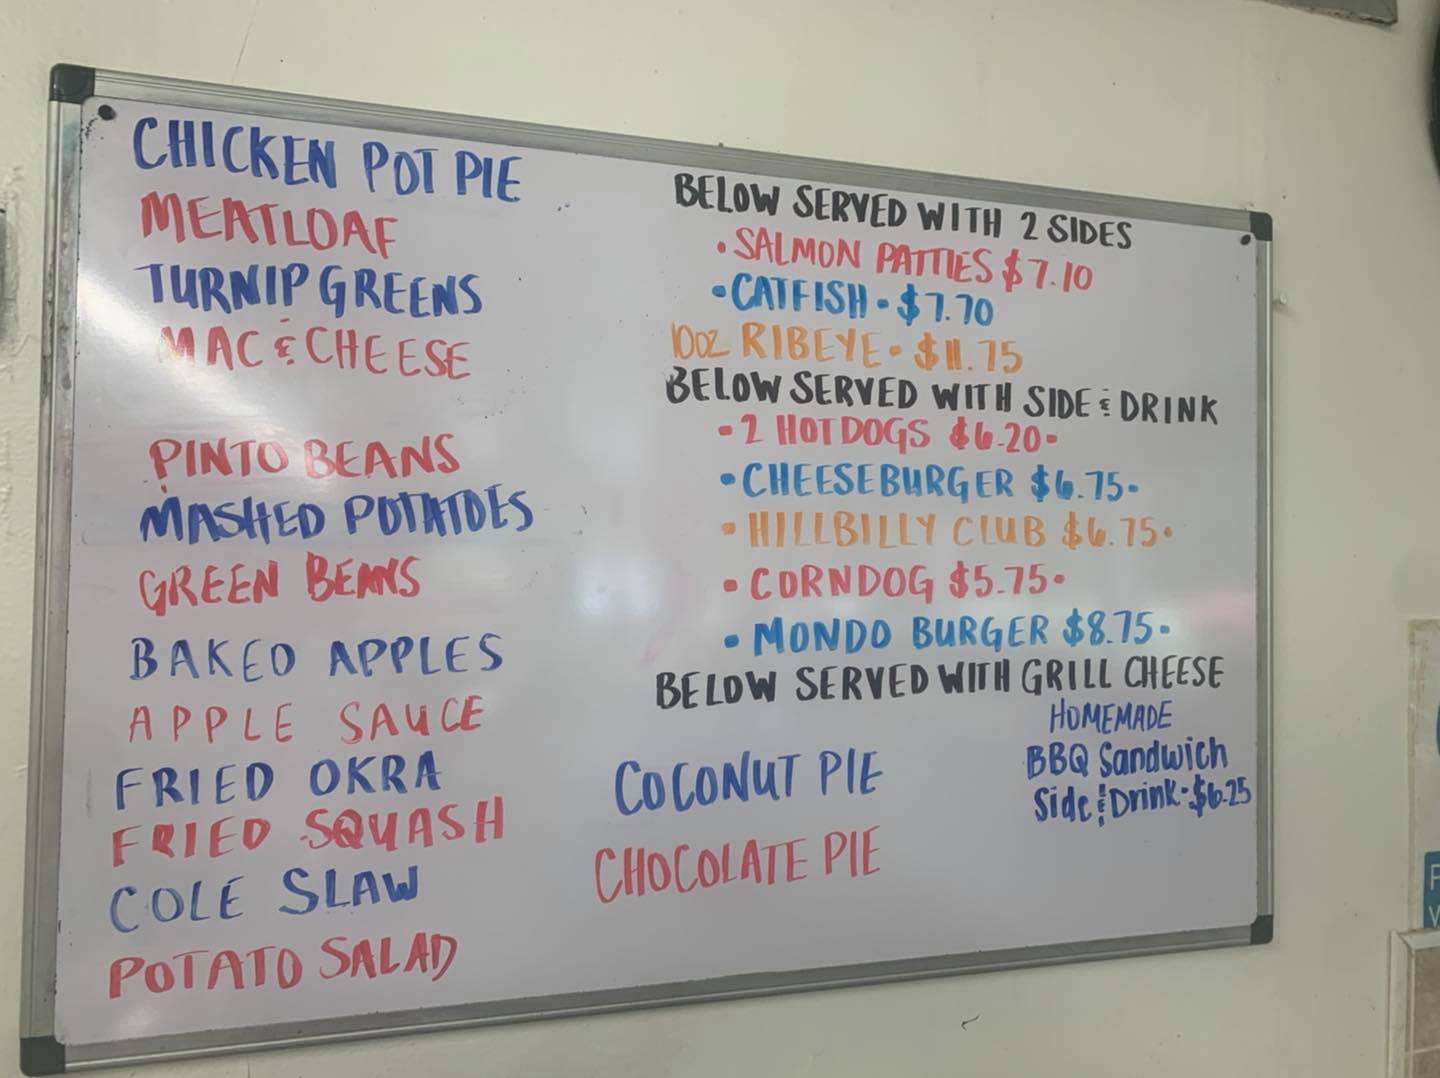 CHICKEN POT PIE
MEATLOAF
TURNIP GREENS
MAC & CHEESE
PINTO BEANS
MASHED POTATOES
GREEN BEANS
BAKED APPLES
APPLE SAUCE
FRIED OKRA
FRIED SQUASH
COLE SLAW
POTATO SALAD
BELOW SERVED WITH 2 SIDES
• SALMON PATTIES $7.10
• CATFISH - $7.70
10OZ RIBEYE - $11.75
BELOW SERVED WITH SIDE & DRINK
• 2 HOTDOGS $6.20 •
• CHEESEBURGER $6.75 •
• HILLBILLY CLUB $6.75 •
• CORNDOG $5.75 •
• MONDO BURGER $8.75 •
BELOW SERVED WITH GRILL CHEESE
COCONUT PIE
CHOCOLATE PIE
HOMEMADE
BBQ Sandwich
Side & Drink - $6.25